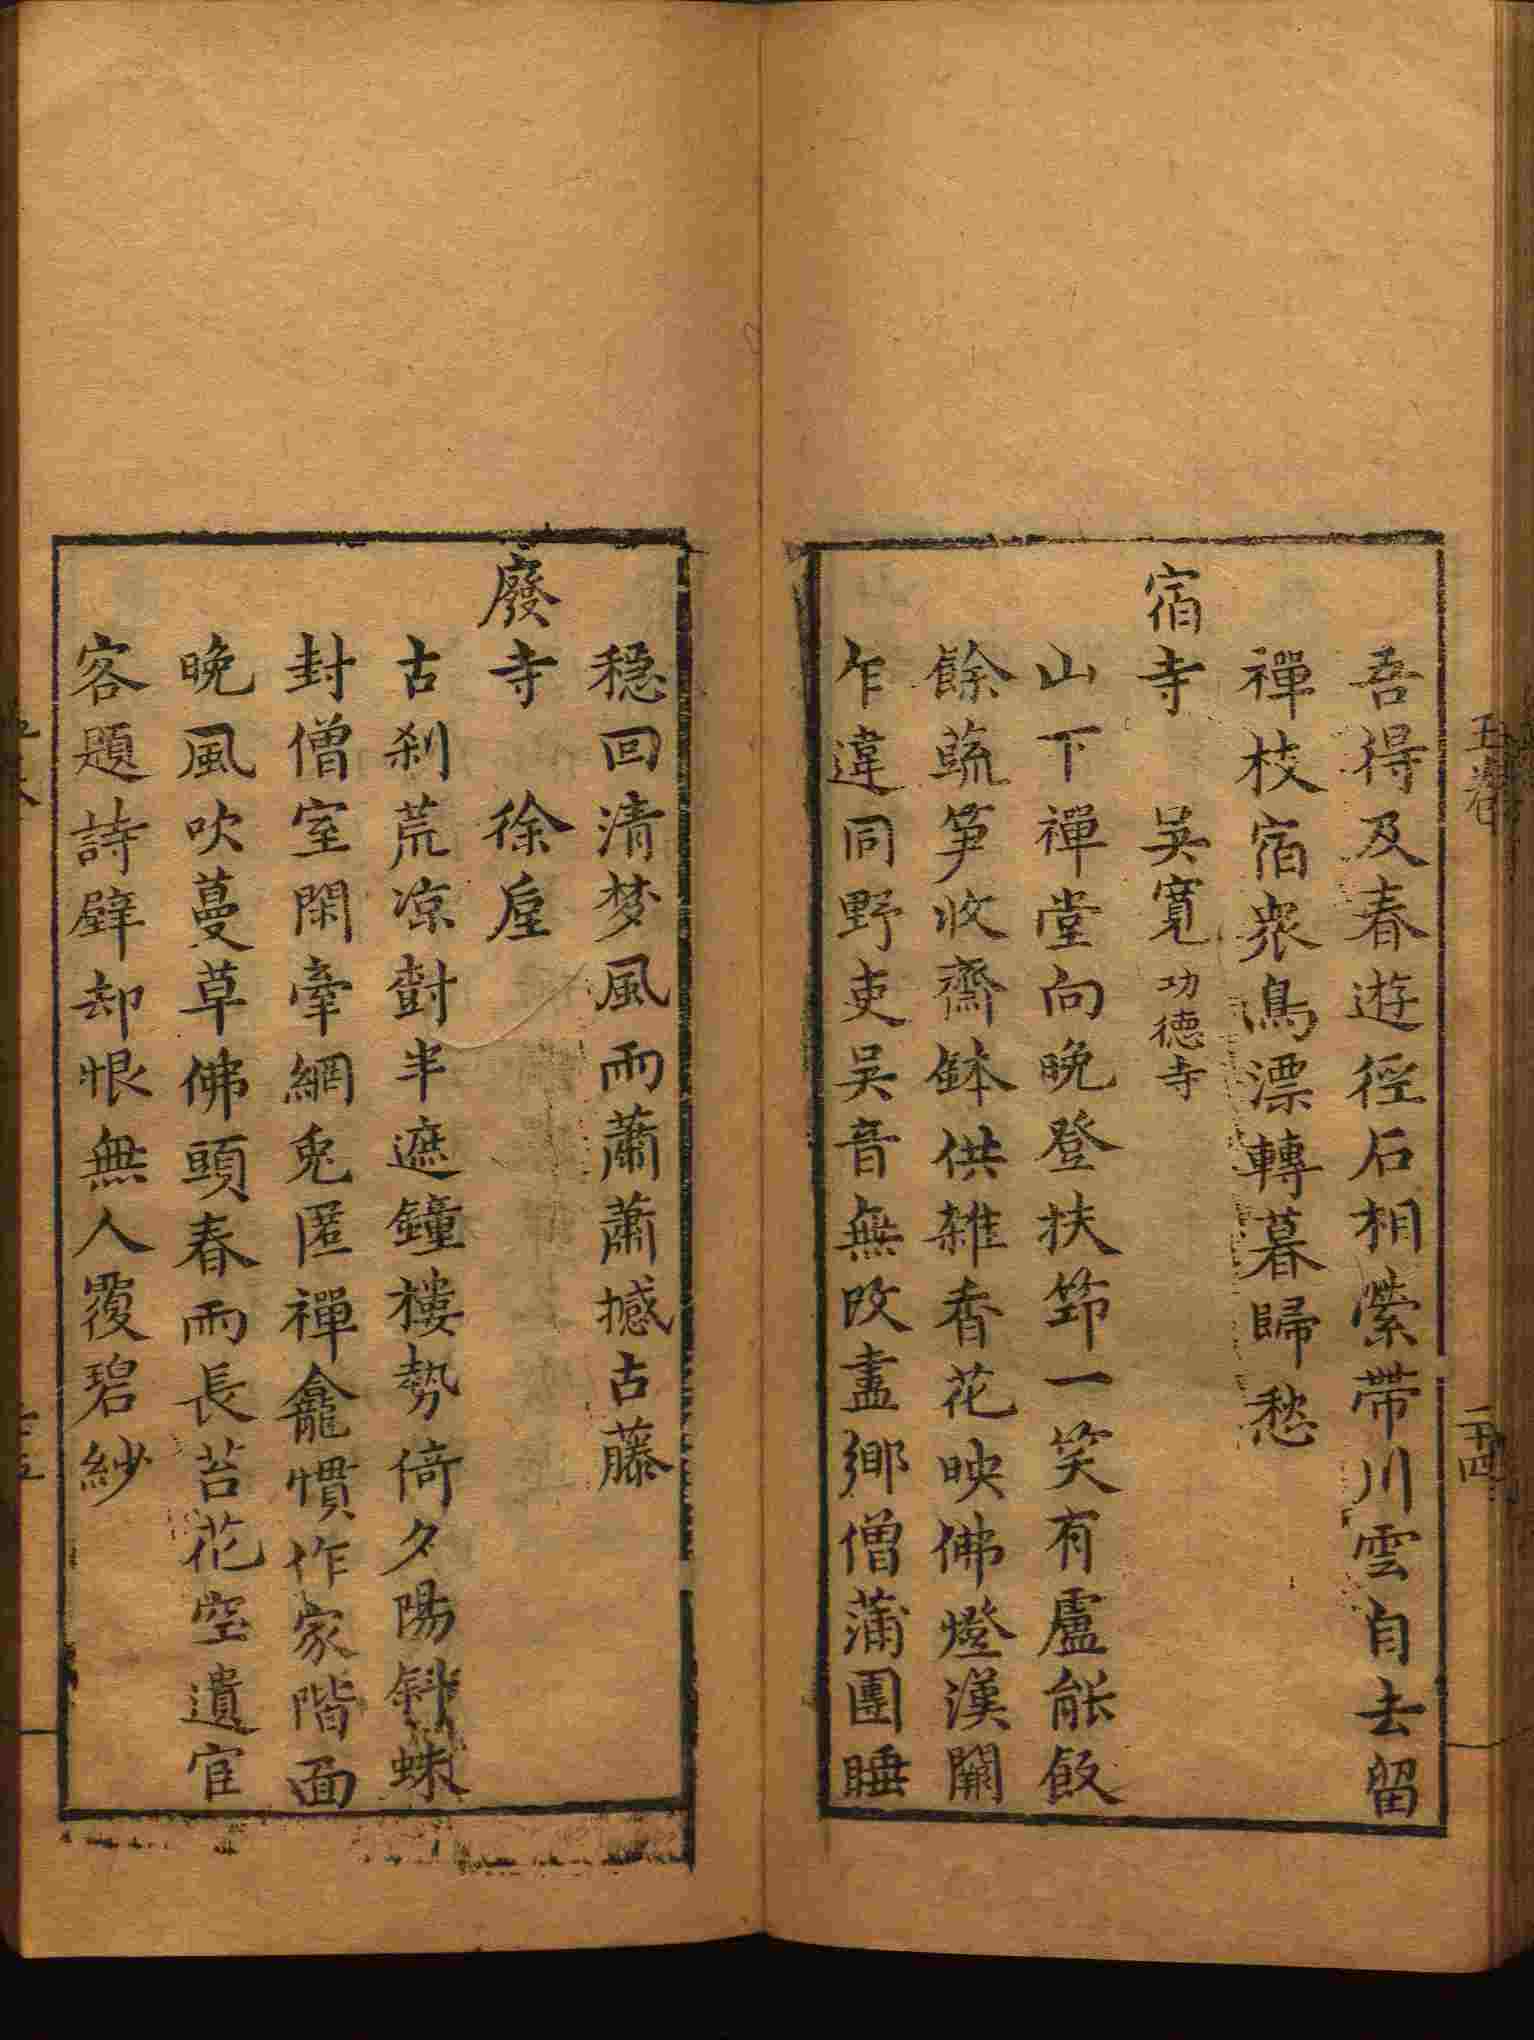 吾得及春遊徑石相縈帶川雲自去留
禪枝宿衆鳥漂轉暮歸愁
宿寺　吳寬功德寺
山下禪堂向晚登扶筇一笑有盧能飯
餘蔬笋收齋鉢供雜香花映佛燈漢關
乍違同野吏吳音無改盡鄉僧蒲團睡
五卷
二十四
穩回清梦風雨蕭蕭撼古藤
廢寺　徐
古刹荒凉對半遮鐘樓勢倚夕陽斜蛛
封僧室閑牽網兎匿禪龕慣作家階面
晚風吹蔓草佛頭春雨長苔花空遺宦
客題詩壁却恨無人覆碧紗